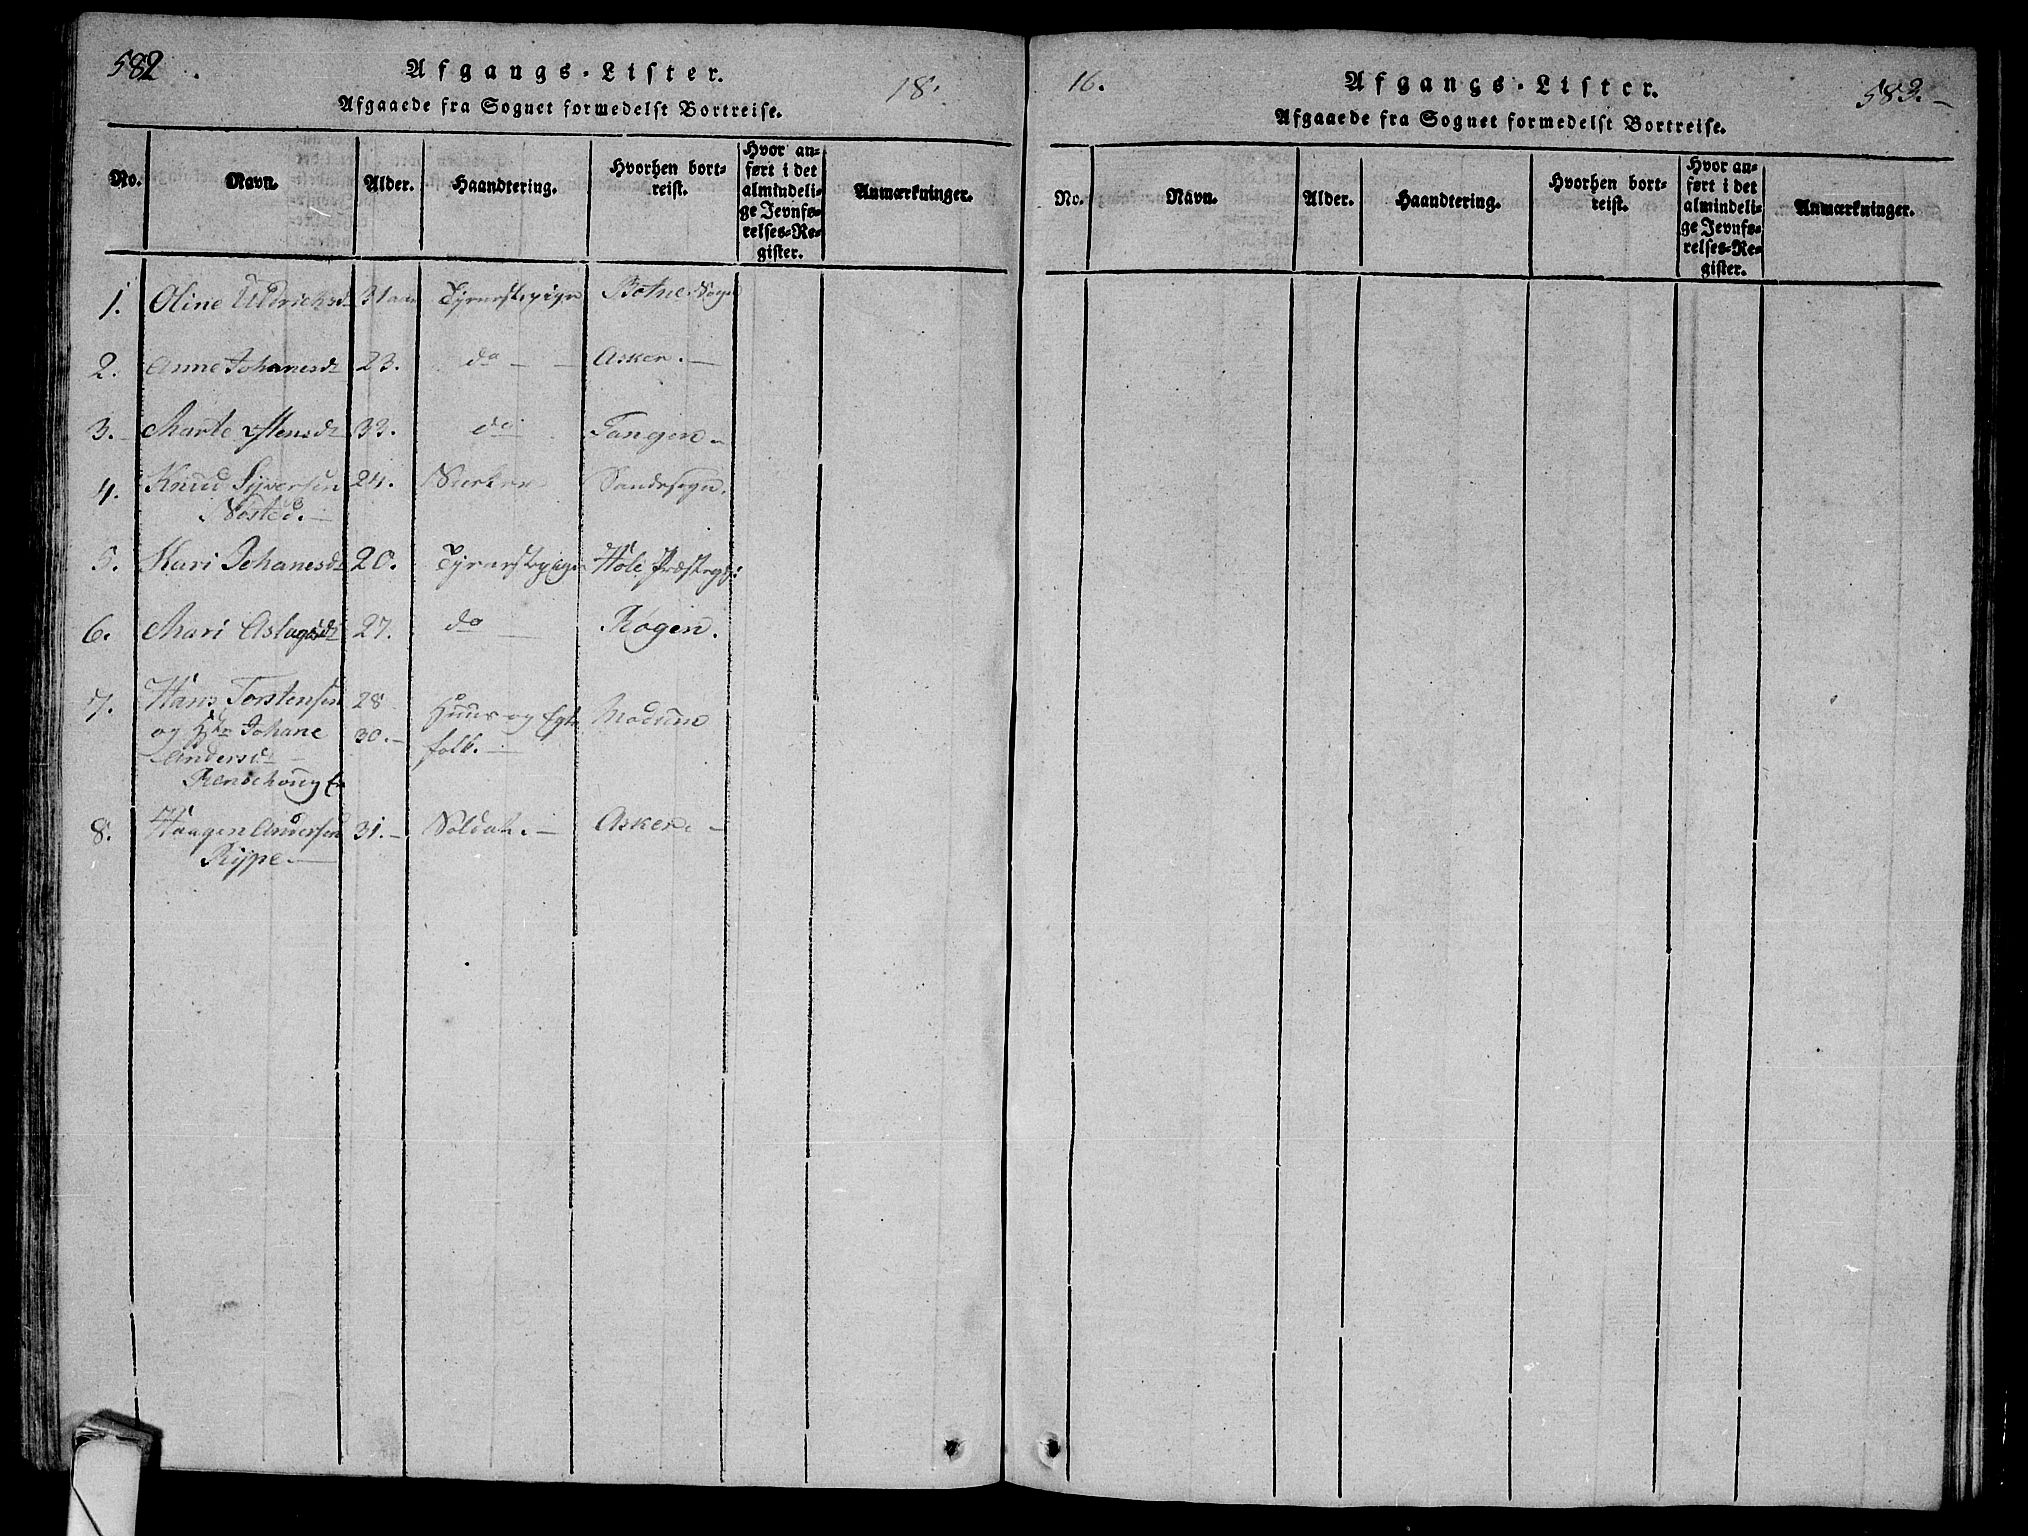 582.
Afgangs-Lister.
18
Afgaaede fra Sognet formedelst Bortreise.
No. Navn. Alder. Haandtering. Hvorhen bortreist. Hvor anført i det almindelige Jevnførelses-Register. Anmærkninger.
1. Oline Ulrichsd 31 aar Tjenestepige Botne Sogn
2. Anne Johanesdr 23. do Asker.
3. Marte Ostensdr 33. do Tangen
4. Knud Syversen 24. Sandesogn.
Nøsted.
5. Kari Johanesdr 20. Tjenestepige Hole Præstegj:
6. Mari Aslagsdr 27. do Røgen.
7. Hans Torstensen 28 Huus og Egte Modum
og Hr Johane 30. folk.
Andersdr
8. Haagen Andersen 31. Soldat. Asker.
Rype.
16.
Afgangs-Lister.
583.
Afgaaede fra Sognet formedelst Bortreise.
No. Navn. Alder. Haandtering. Hvorhen bortreist. Hvor anført i det almindelige Jevnførelses-Register. Anmærkninger.